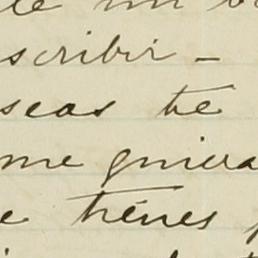 de un
scribir _
seas te
me quiera
e tienes